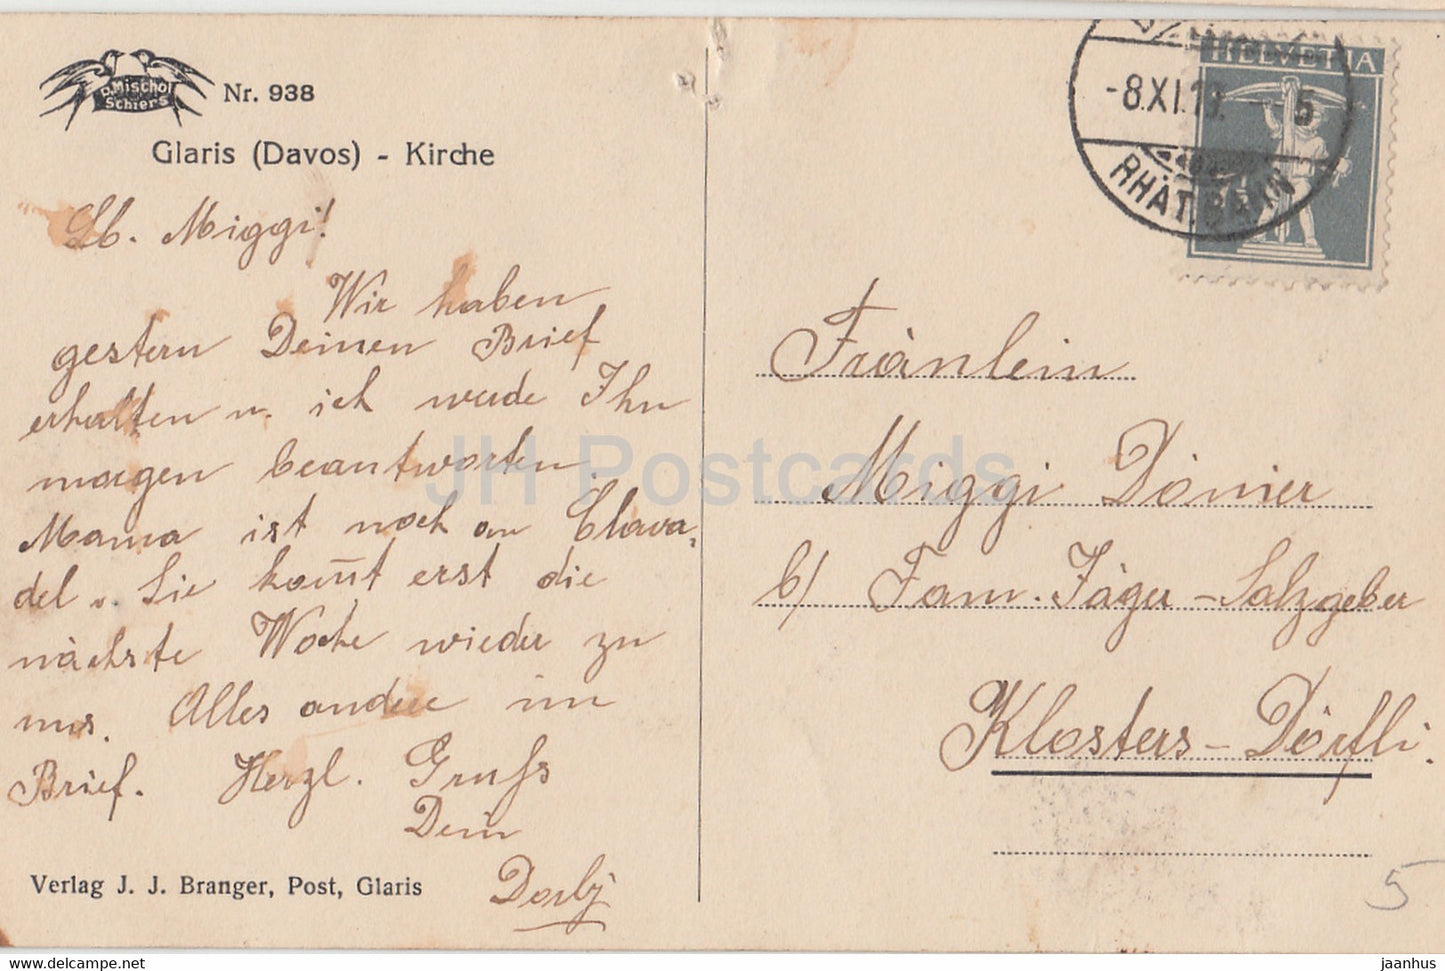 D. Mischol
Schiers
Nr. 938
Glaris (Davos) - Kirche
Lb. Miggi!
Wir haben
gestern Deinen Brief
erhalten u. ich werde Ihn
morgen beantworten.
Mama ist noch in Clava-
del. Sie kom̄t erst die
nächste Woche wieder zu
uns. Alles andere im
Brief. Herzl. Gruss
Dein
Verlag J. J. Branger, Post, Glaris
HELVETIA
-8.XI.13. -5
RHÄT. BAHN
Fräulein
Miggi Dönier
b/ Fam. Jäger-Salzgeber
Klosters-Dörfli.
5
JH Postcards
www.delcampe.net
jaanhus